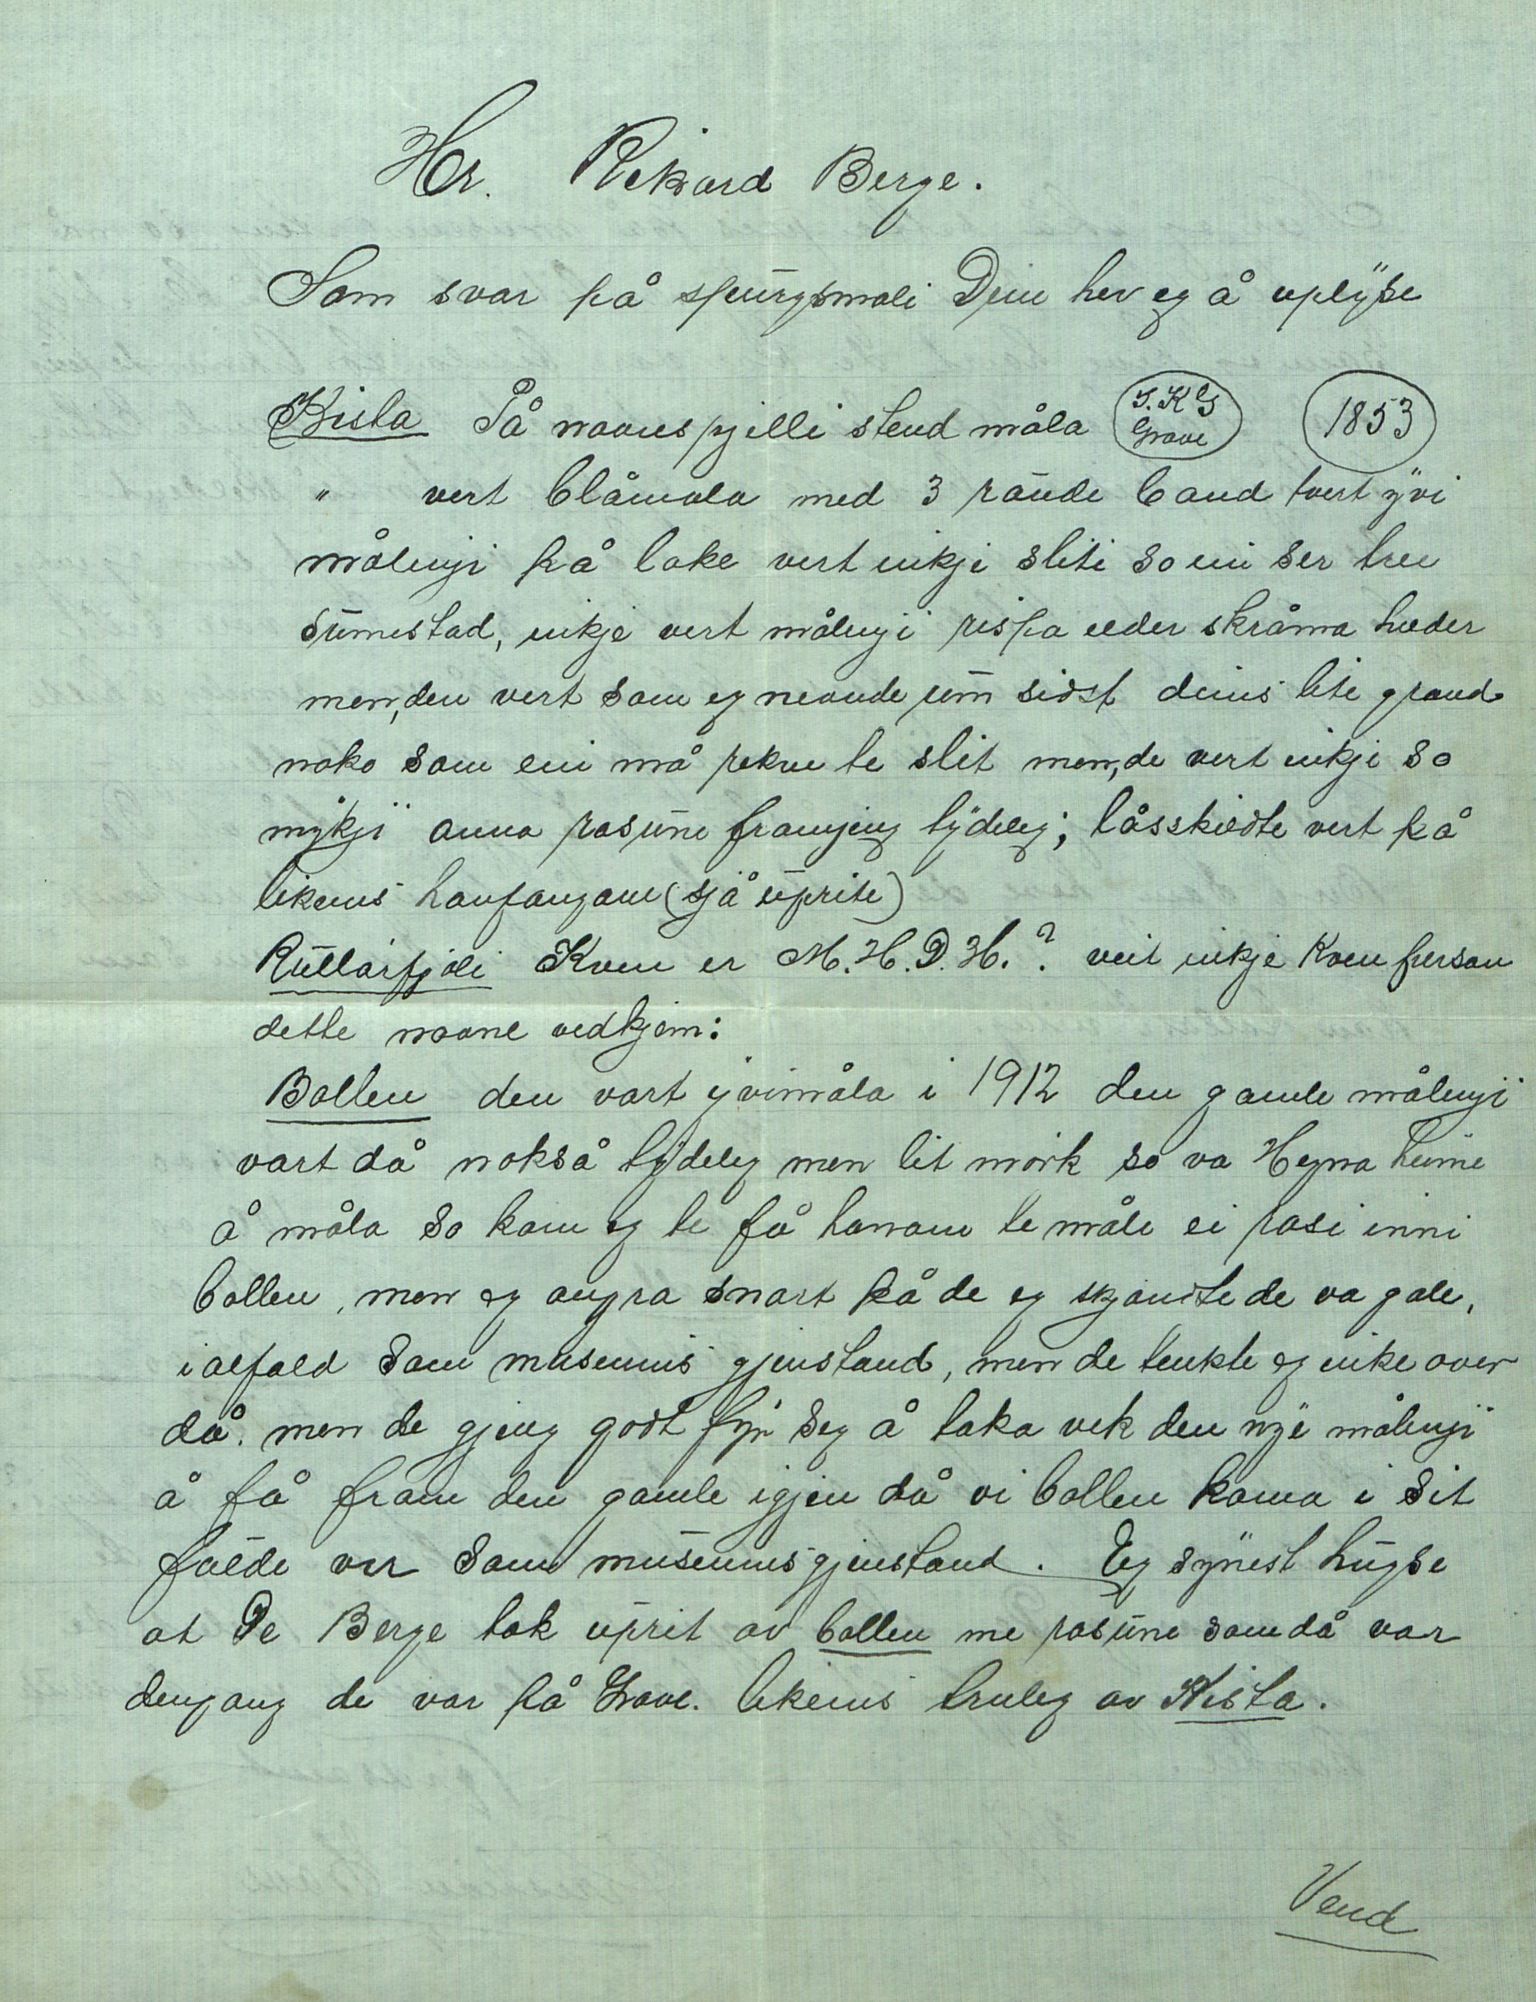 Hr. Rikard Berge.
Som svar på spurgsmali Dein hev eg å uplyse
Kista På navnespjelli stend måla J. K S Grave 1853
" vert blåmala med 3 raude band tvert yvi
målingi på loke vert inkje sliti so ein ser tree
sumestad, inkje vert målingi rispa eeder skråma heeder
men, den vert som eg nevnde um sidst deins lite grand
noko som ein må rekne te slit men, de vert inkje so
mykji anna rosune framgjeng tydeleg; låsskiedte vert på
likeins hanfangane (sjå uprite)
Rullarfjøli Kven er M. H. D. H. ? veit inkje kven person
dette navne vedkjem:
Bollen den vart yvimåla i 1912 den gamle målingi
vart då nokså tydeleg men lit mørk so va Hegna heime
å måla so kom eg te få honom te måle ei rosi inni
bollen, men eg angra snart på de eg skjøndte de va gale,
i alfald som museums gjenstand, men de tenkte eg inke over
då. men de gjeng godt fyr seg å taka vek den nye målingi
å få fram den gamle igjen då vi bollen koma i sit
fulde ver som museumsgjenstand. Eg synest hugse
at De Berge tok uprit av bollen me rosune som då var
dengang de var på Grave. likeins truleg av Kista.
Vend